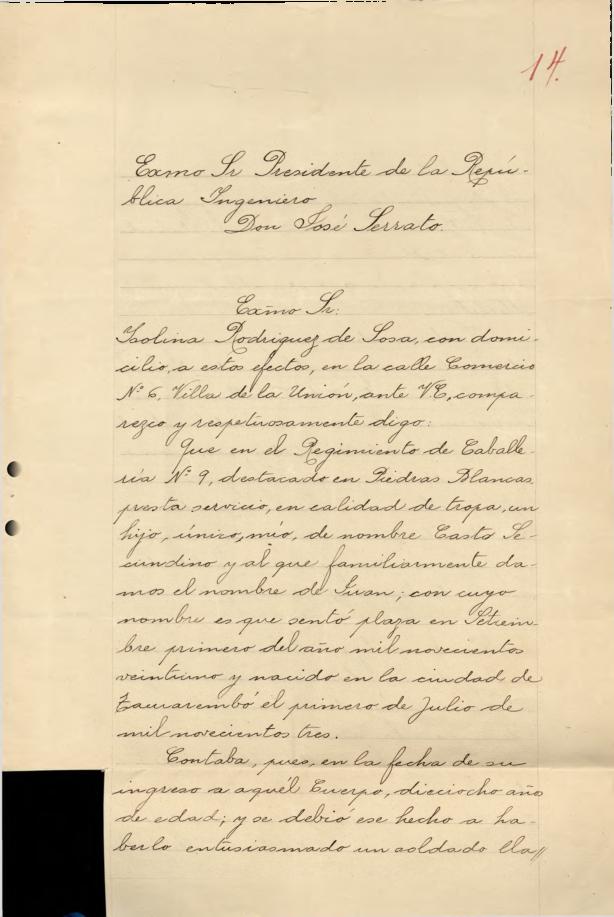 14.
Exmo Sr Presidente de la Repú-
blica Ingeniero
Don José Serrato.
Exmo Sr:
Isolina Rodriguez de Sosa, con domi-
cilio, a estos efectos, en la calle Comercio
Nº 6, Villa de la Unión, ante V.E, compa-
rezco y respetuosamente digo:
Que en el Regimiento de Caballe-
ría Nº 9, destacado en Piedras Blancas
presta servicio, en calidad de tropa, un
hijo, único, mío, de nombre Casto Se-
cundino y al que familiarmente da-
mos el nombre de Juan; con cuyo
nombre es que sentó plaza en Setiem-
bre primero del año mil novecientos
veintiuno y nacido en la ciudad de
Tacuarembó el primero de Julio de
mil novecientos tres.
Contaba, pues, en la fecha de su
ingreso a aquél Cuerpo, dieciocho año
de edad; y se debió ese hecho a ha-
berlo entusiasmado un soldado lla//